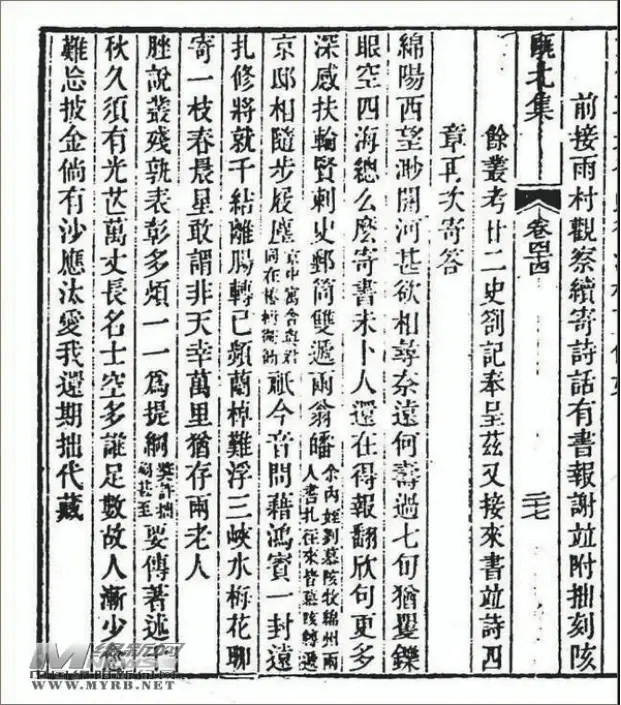 前接雨村觀察續寄詩話有書報謝並附拙刻陔
甌北集 卷四十四 二七
餘叢考廿二史劄記奉呈茲又接來書並詩四
章再次寄答
綿陽西望渺關河甚欲相尋奈遠何壽過七旬猶矍鑠
眼空四海總么麼寄書未卜人還在得報翻欣句更多
深感扶輪賢刺史郵筒雙遞兩翁皤余內姪劉慕陔牧綿州兩人書札往來皆慕陔轉遞
京邸相隨步屧塵京中寓舍與君同在椿樹衚衕祇今音問藉鴻賓一封遠
札修將就千結離腸轉已頻蘭棹難浮三峽水梅花聊
寄一枝春晨星敢謂非天幸萬里猶存兩老人
脞說叢殘孰表彰多煩一一爲提綱獎許拙刻甚至要傳著述
秋久須有光芒萬丈長名士空多誰足數故人漸少
難忘披金倘有沙應汰愛我還期拙代藏
WWW.MYRB.NET